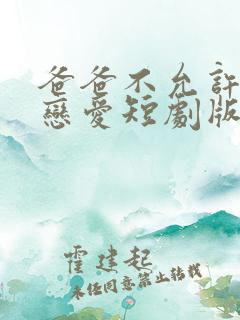 爸爸不允許
戀愛短劇版
霍建起
未經同意禁止轉載